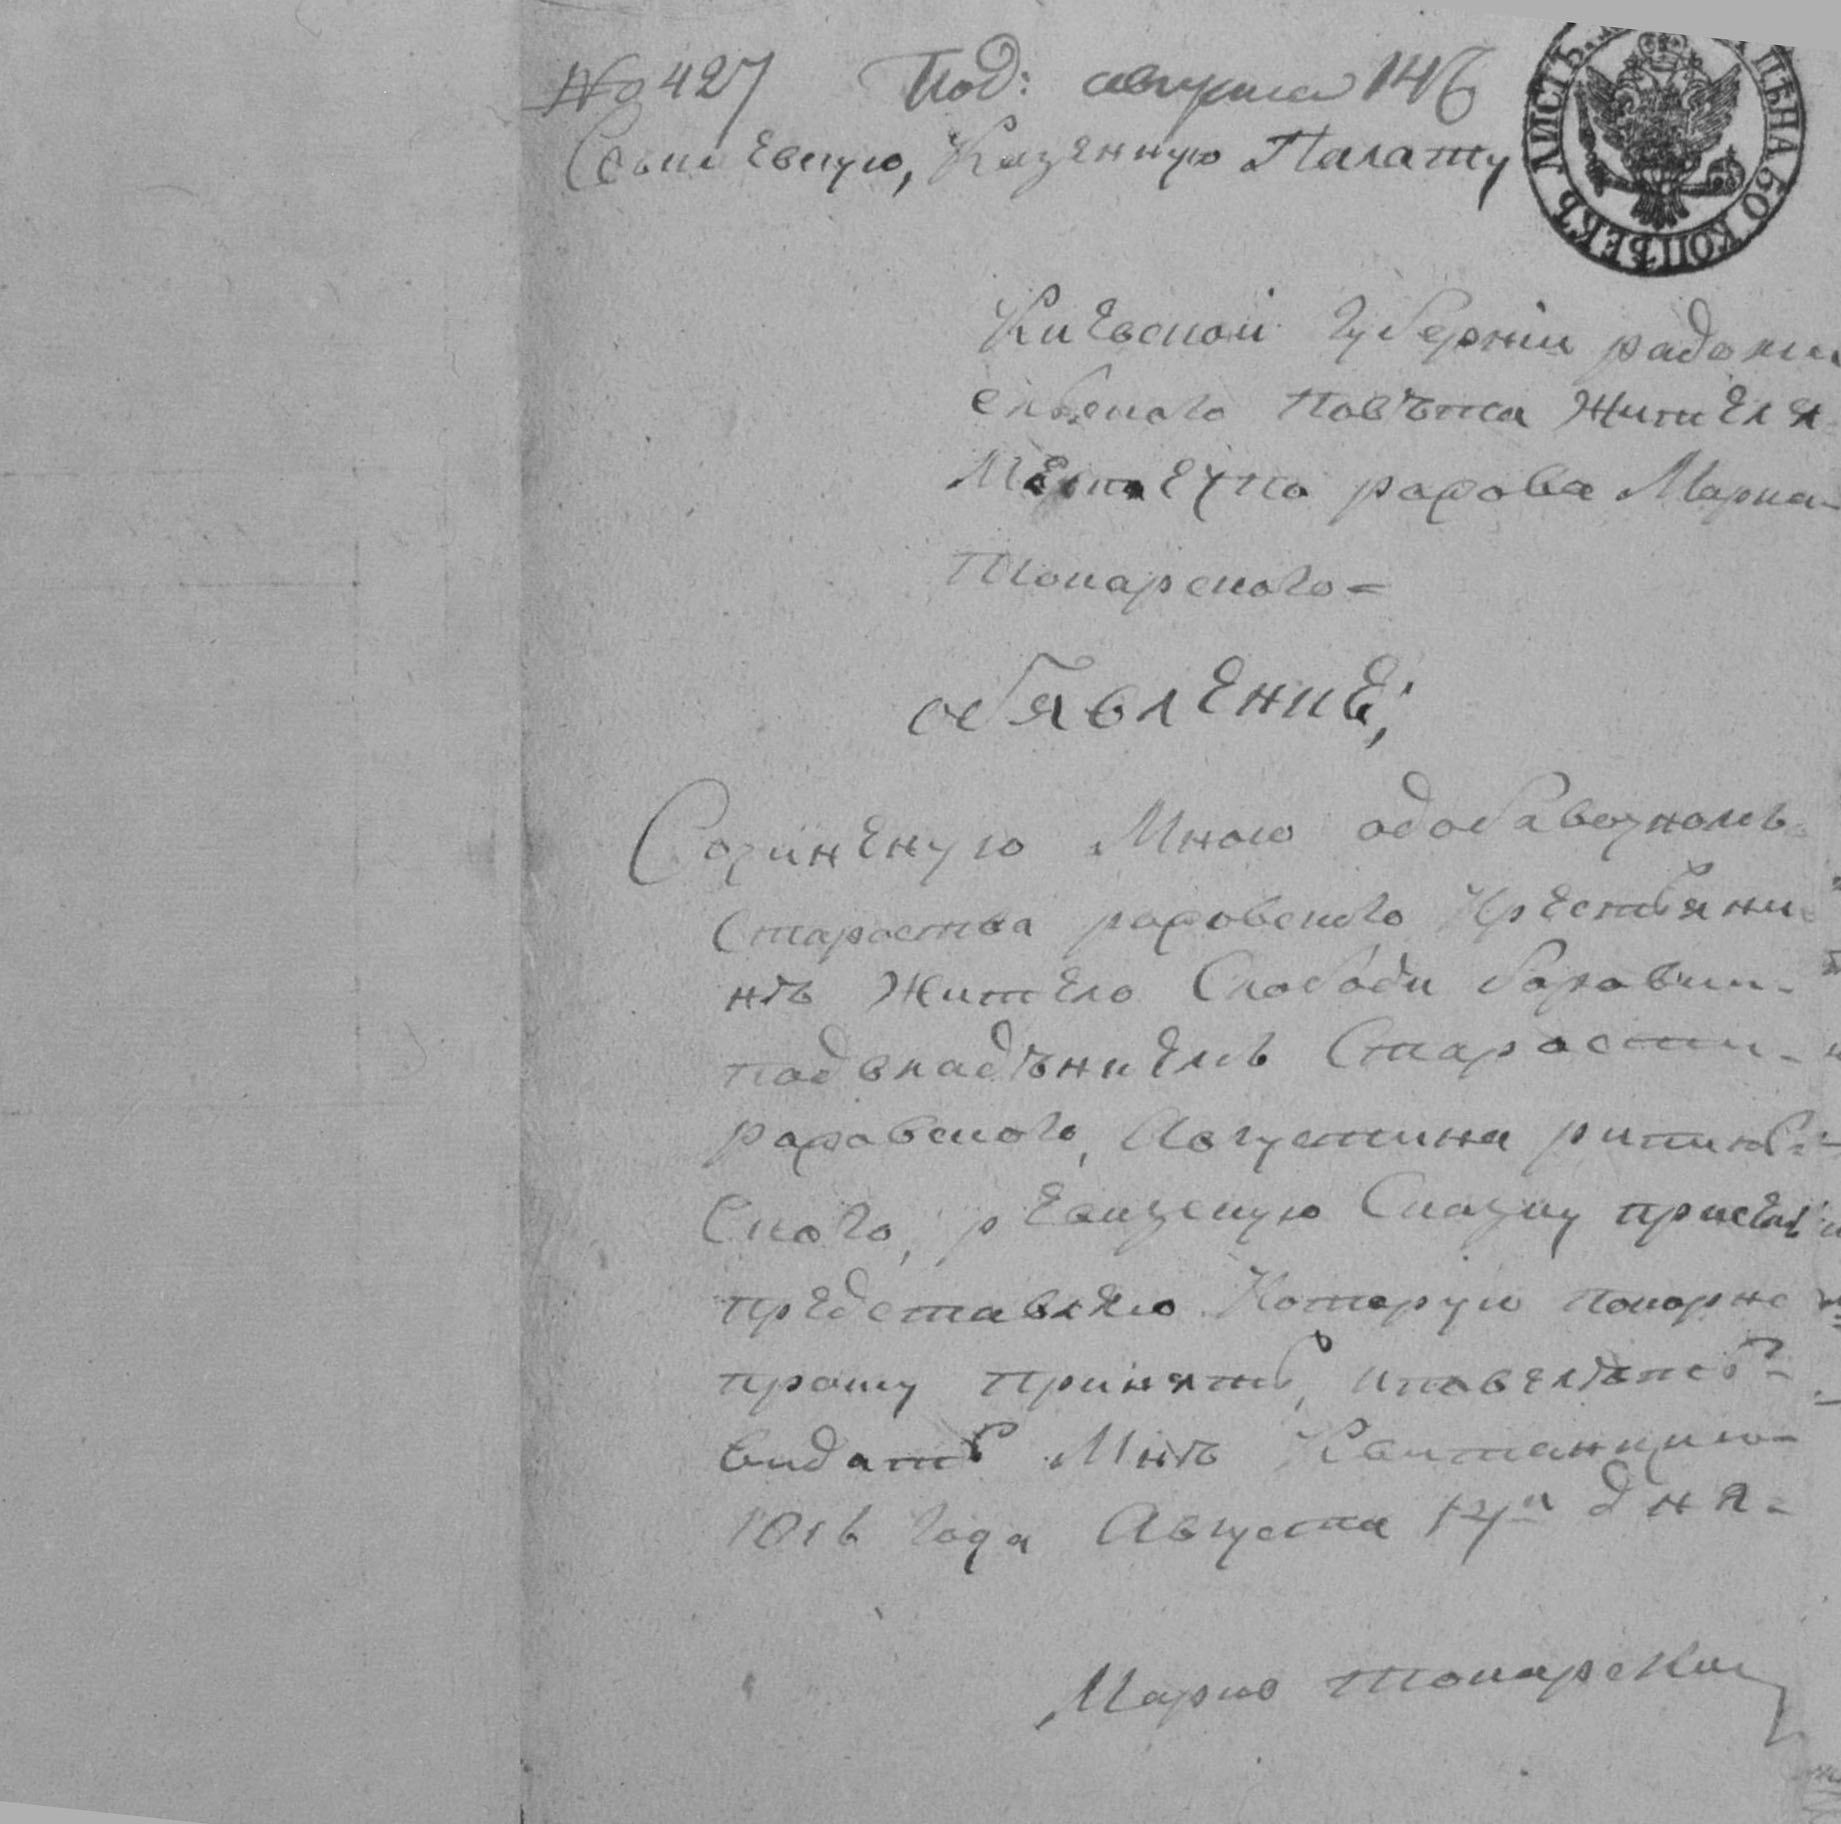 № 427 Под: августа 14 б
Киевскую, Казенную Палату
ЛИСТЪ ЦѢНА 50 КОПѢЕКЪ
Киевской губернии радоми
слского повѣта жителя
Местечка рахова Марка
Токарского =
объявление;
Сочиненую Мною
староства раховского крестьяни
нѣ жителю Слободи
подвладѣнием Старости
раховского, Августина
ского, ревизскую Сказку присем
представляю Которую покорно
прошу принять, иповелѣть
видать Мнѣ Квитанцию
1816 года Августа дня
Марко Токарский